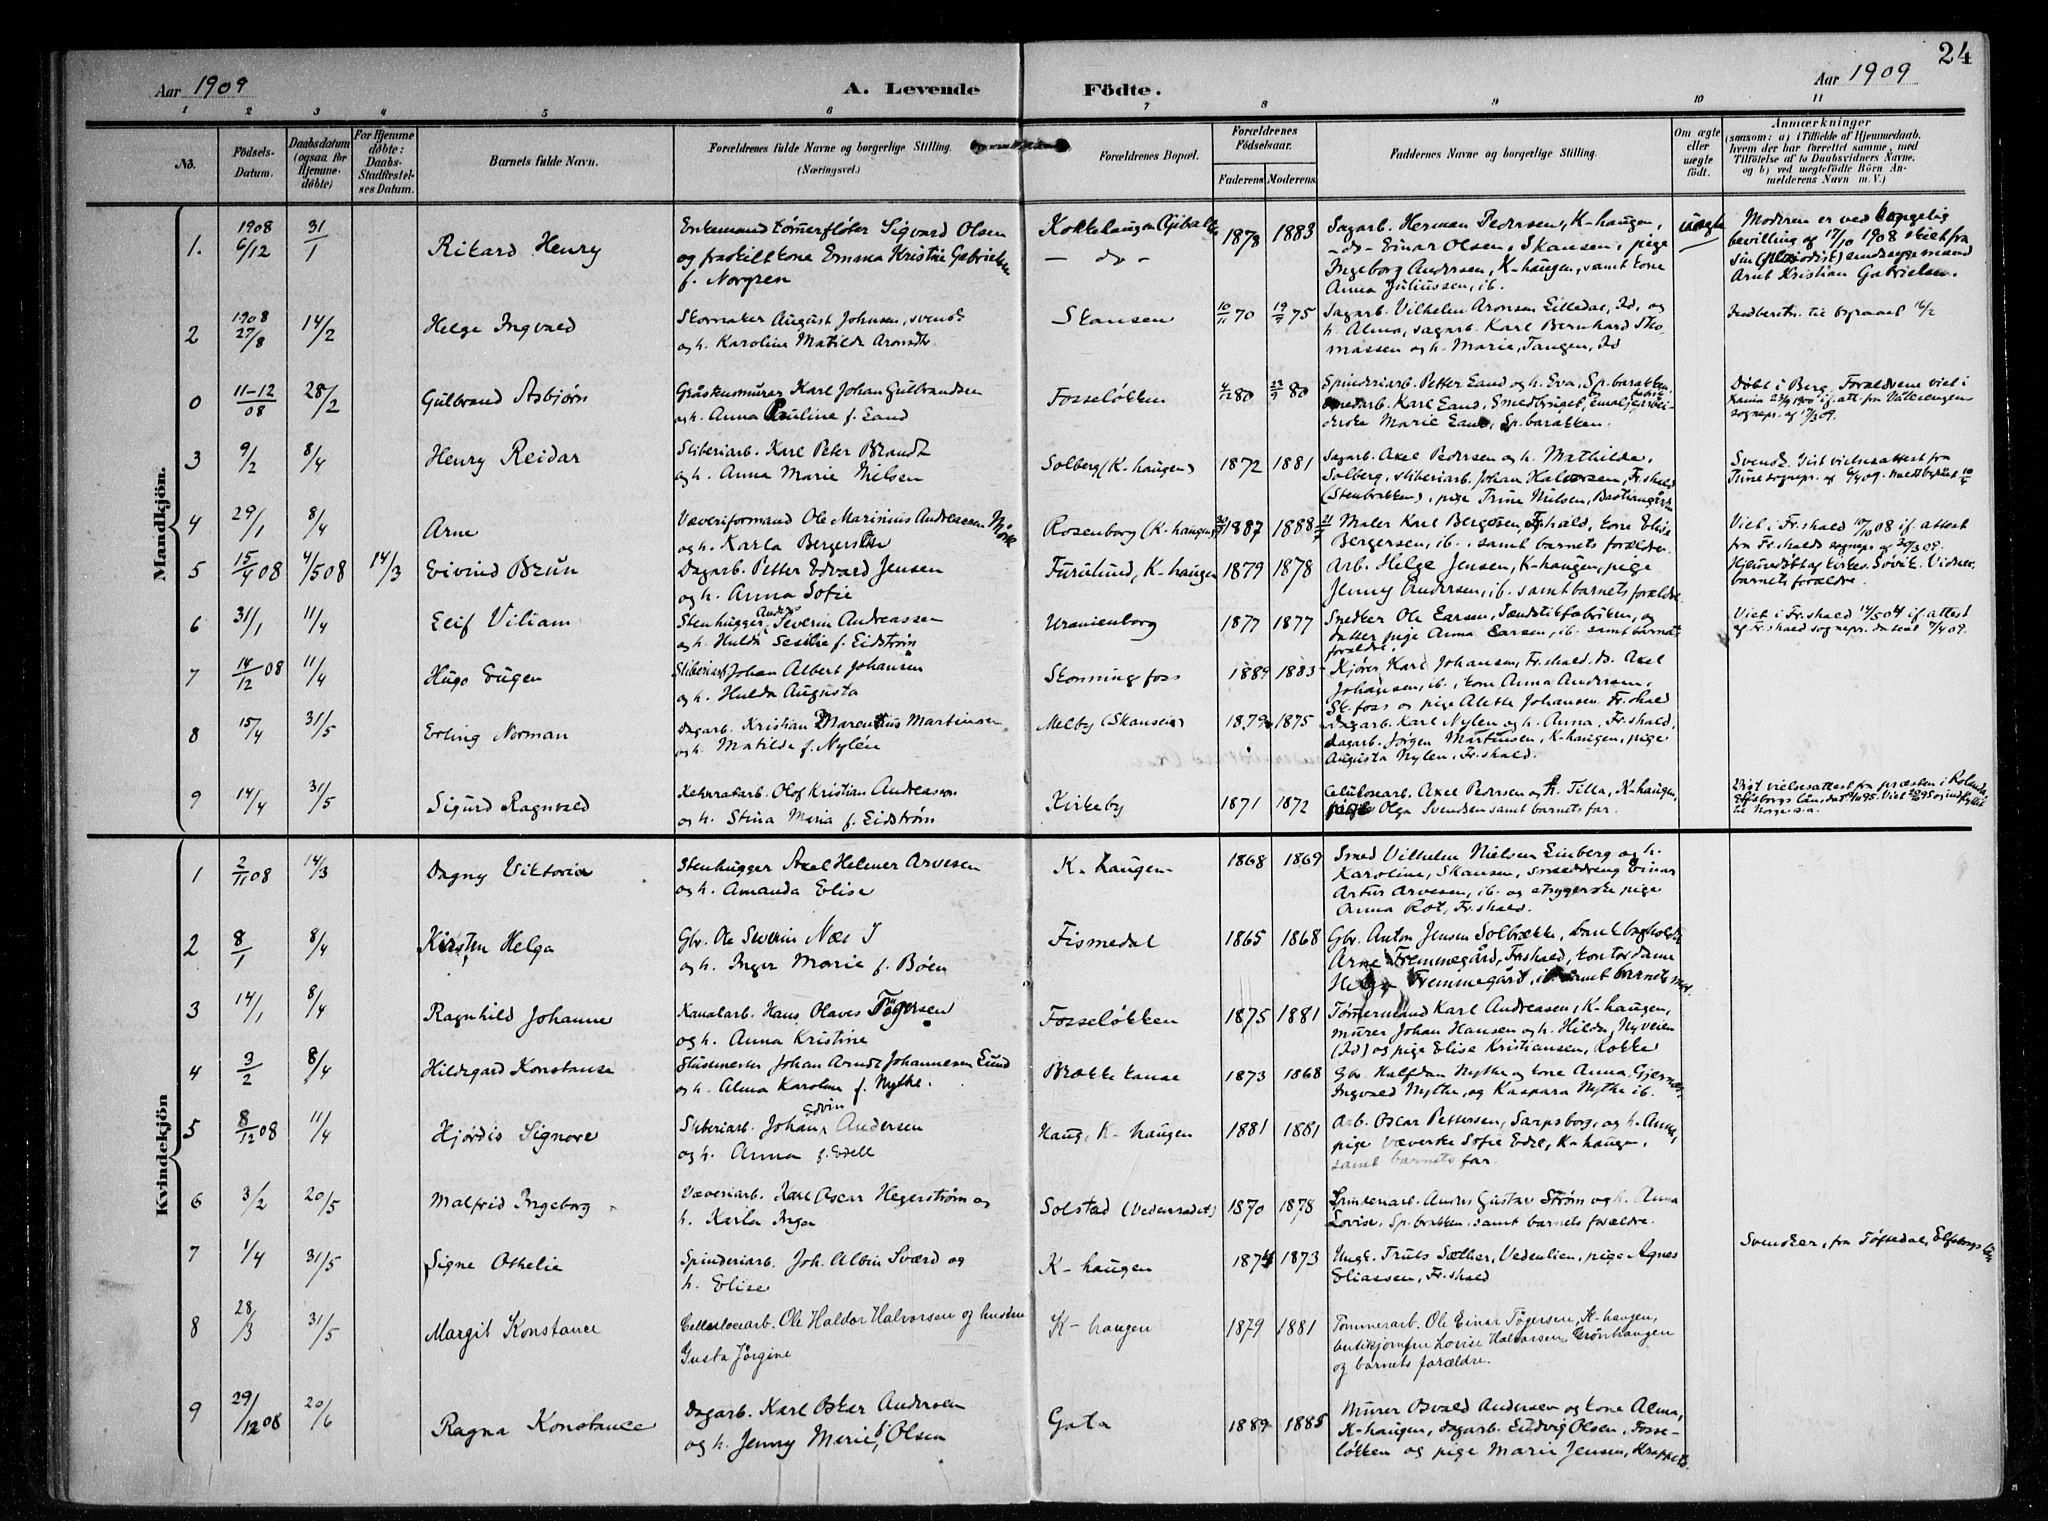 24
Aar 1909
A. Levende
Födte.
Aar 1909
1 2 3 4 5 6 7 8 9 10 11
No.
Födsels-
Datum.
Daabsdatum
(ogsaa for
Hjemme-
döbte)
For Hjemme
döbte:
Daabs-
Stadfæstel-
ses Datum.
Barnets fulde Navn.
Forældrenes fulde Navne og borgerlige Stilling.
(Næringsvei.)
Forældrenes Bopæl.
Forældrenes
Födselsaar.
Faderens.
Moderens.
Faddernes Navne og borgerlige Stilling.
Om ægte
eller
uægte
födt.
Anmærkninger
(saasom: a) i Tilfælde af Hjemmedaab,
hvem der har forrettet samme, med
Tilföielse af to Daabsvidners Navne,
og b) ved uægtefödte Börn An-
melderens Navn m. V.)
Mandkjön.
1. 1908 6/12 31/1 Rikard Henry
Enkemand tømerfløter Sigvard Olsen
og fraskilt kone Emma Kristine Gabrielsen
f. Norgren
Kokkehaugen
- do -
1878 1883
Sagarb. Herman Pedersen, K-haugen,
- do - Einar Olsen, Skansen, pige
Ingeborg Andersen, K-haugen, samt kone
Anna Juliussen, ib.
uægte
Moderen er ved kongelig
bevilling af 17/10 1908 skilt fra
sin sindssyge mand
Arnt Kristian Gabrielsen.
2 1908 27/8 14/2 Helge Ingvald
Skomaker August Johnsen, svensk
og h. Karoline Matilde
Skansen
10/11 70 19/7 75
Sagarb. Vilhelm Aronsen Lilledal, Id, og
h. Alma, sagarb. Karl Bernhard Tho-
massen og h. Marie, Tangen, Id
Indberettn. til byraaet 16/2
0 11-12 08 28/2 Gulbrand Asbjørn
Gråstensmurer Karl Johan Gulbrandsen
og h. Anna Pauline f. Land
Fosseløkken
4/12 80 22/9 80
Spinderiarb. Petter Land og h. Eva, Sp. barakken
smedarb. Karl Land, Smedbruget,
Marie Land, Sp. barakken.
Døbt i Berg. Forældrene viet i
23/9 1900 if. att. fra Vålerengen
sognepr. af 17/3 09.
3 9/2 8/4 Henry Reidar
Sliberiarb. Karl Peter Brandt
og h. Anna Marie Nilsen
Solberg (K-haugen)
1872 1881
Sagarb. Axel Pedersen og h. Mathilde,
Solberg, sliberiarb. Johan Halvorsen, Fr.shald
(Stenbrakken), pige Trine Nilsen,
Svensk. Vist vielsesattest fra
Tune sognepr. af 6/4 09.
4 29/1 8/4 Arne
Væveriformand Ole Marinius Andreassen Mørk
og h. Karla Bergersette
Rosenborg (K-haugen)
1887 1888
Maler Karl Bergersen, Fr.shald, kone Elise
Bergersen, ib. samt barnets forældre.
Viet i Fr.shald 10/10 08 if. attest
fra Fr.shalds sognepr. af 30/3 09.
5 15/4 08 4/5 08 14/3 Eivind Brün
Dagarb. Petter Edvard Jensen
og h. Anna Sofie
Furulund, K-haugen
1879 1878
Arb. Helge Jensen, K-haugen, pige
Jenny Andersen, ib. samt barnets forældre.
Hjemedøbt af kirkes. Søvik. Vidner
barnets forældre.
6 31/1 11/4 Leif Viliam
Stenhugger Anders Severin Andreassen
og h. Hulda Sesilie f. Eidstrøm
Uranienborg
1877 1877
Snedker Ole Larsen, Tændstikfabriken, og
datter pige Anna Larsen, ib. samt barnets
forældre.
Viet i Fr.shald 14/5 04 if. attest
af Fr.shald sognepr. dateret 7/4 09.
7 14/12 08 11/4 Hugo Eugen
Sliberiarb. Johan Albert Johansen
og h. Hulda Augusta
Skonningfoss
1889 1883
Kjører Karl Johansen, Fr.shald, do. Axel
Johansen, ib., kone Anna Andersen,
Sk.foss og pige Alette Johansen Fr.shald
8 15/4 31/5 Erling Norman
Dagarb. Kristian Marentius Martinsen
og h. Matilde f. Nylén
Melby (Skansen)
1879 1875
Dagarb. Karl Nylen og h. Anna, Fr.shald,
dagarb. Jørgen Martinsen, K-haugen, pige
Augusta Nylen, Fr.shald.
9 14/4 31/5 Sigurd Ragnvald
Olof Kristian Andreasson
og h. Stina Maria f. Eidstrøm
Kirkeby
1871 1872
Celulosearb. Axel Pedersen og h. Tilla, K-haugen,
pige Olga Svendsen samt barnets far.
Vist vielsesattest fra præsten i
Elfsborgs län
til Norge s.a.
Kvindekjön
1 2/11 08 14/3 Dagny Viktoria
Stenhugger Axel Helmer Arvesen
og h. Amanda Elise
K-haugen
1868 1869
Smed Vilhelm Nielsen Linberg og h.
Karoline, Skansen, smeddreng Einar
Artur Arvesen, ib. og strygerske pige
Anna Rot, Fr.shald.
2 8/1 8/4 Kirsten Helga
Gbr. Ole Severin Næs
og h. Inger Marie f. Bøen
Fismedal
1865 1868
Gbr. Anton Jensen Solbrække,
Arne Fremmegård, Fr.shald, kontordame
Helga Fremmegård, ib. samt barnets mor.
3 14/1 8/4 Ragnhild Johanne
Kanalarb. Hans Olaves Tøgersen
og h. Anna Kristine
Fosseløkken
1875 1881
Tømmermand Karl Andreasen, K-haugen,
murer Johan Hansen og h. Hilda, Nyveien
(Id) og pige Elise Kristiansen, Rokke
4 3/2 8/4 Hildegard Konstanse
Slusemester Johan Arndt Johannesen Lund
og h. Alma Karoline f. Nythe.
Brække kanal
1873 1868
Gbr. Halfdan Nythe og kone Anna,
Ingvald Nythe, og Kaspara Nythe ib.
5 8/12 08 11/4 Hjørdis Signore
Sliberiarb. Johan Edvin Andersen
og h. Anna f. Edell
Haug, K-haugen
1881 1881
Arb. Oscar Pettersen, Sarpsborg, og h. Anna,
pige væverske Sofie Edel, K-haugen,
samt barnets far.
6 3/2 20/5 Malfrid Ingeborg
Væveriarb. Karl Oscar Hegerstrøm og
h. Karla Inga
Solstad (Vedenradet)
1870 1878
Spinderiarb. Anders Gustav Strøm og h. Anna
Lovise, Sp.brakken, samt barnets forældre.
7 1/4 31/5 Signe Othelie
Spinderiarb. Joh. Albin Sværd og
h. Elise
K-haugen
1874 1873
Ungk. Truls Sæther, Vedenlien, pige Agnes
Eliassen, Fr.shald
Svensker, fra Töftedal, Elfsborgs län
8 28/3 31/5 Margit Konstance
Cellulosearb. Ole Haldor Halvorsen og hustru
Gusta Jørgine
K-haugen
1879 1881
Tømmerarb. Ole Einar Tøgersen, K-haugen,
butikjomfru Lovise Halvorsen, Grönhaugen
og barnets forældre.
9 29/12 08 20/6 Ragna Konstance
Dagarb. Karl Oskar Andersen
og h. Jenny Marie, Olsen
Gata
1889 1885
Murer Osvald Andersen og kone Alma,
K-haugen, dagarb. Ludvig Olsen, Fosse-
løkken og pige Marie Jensen,